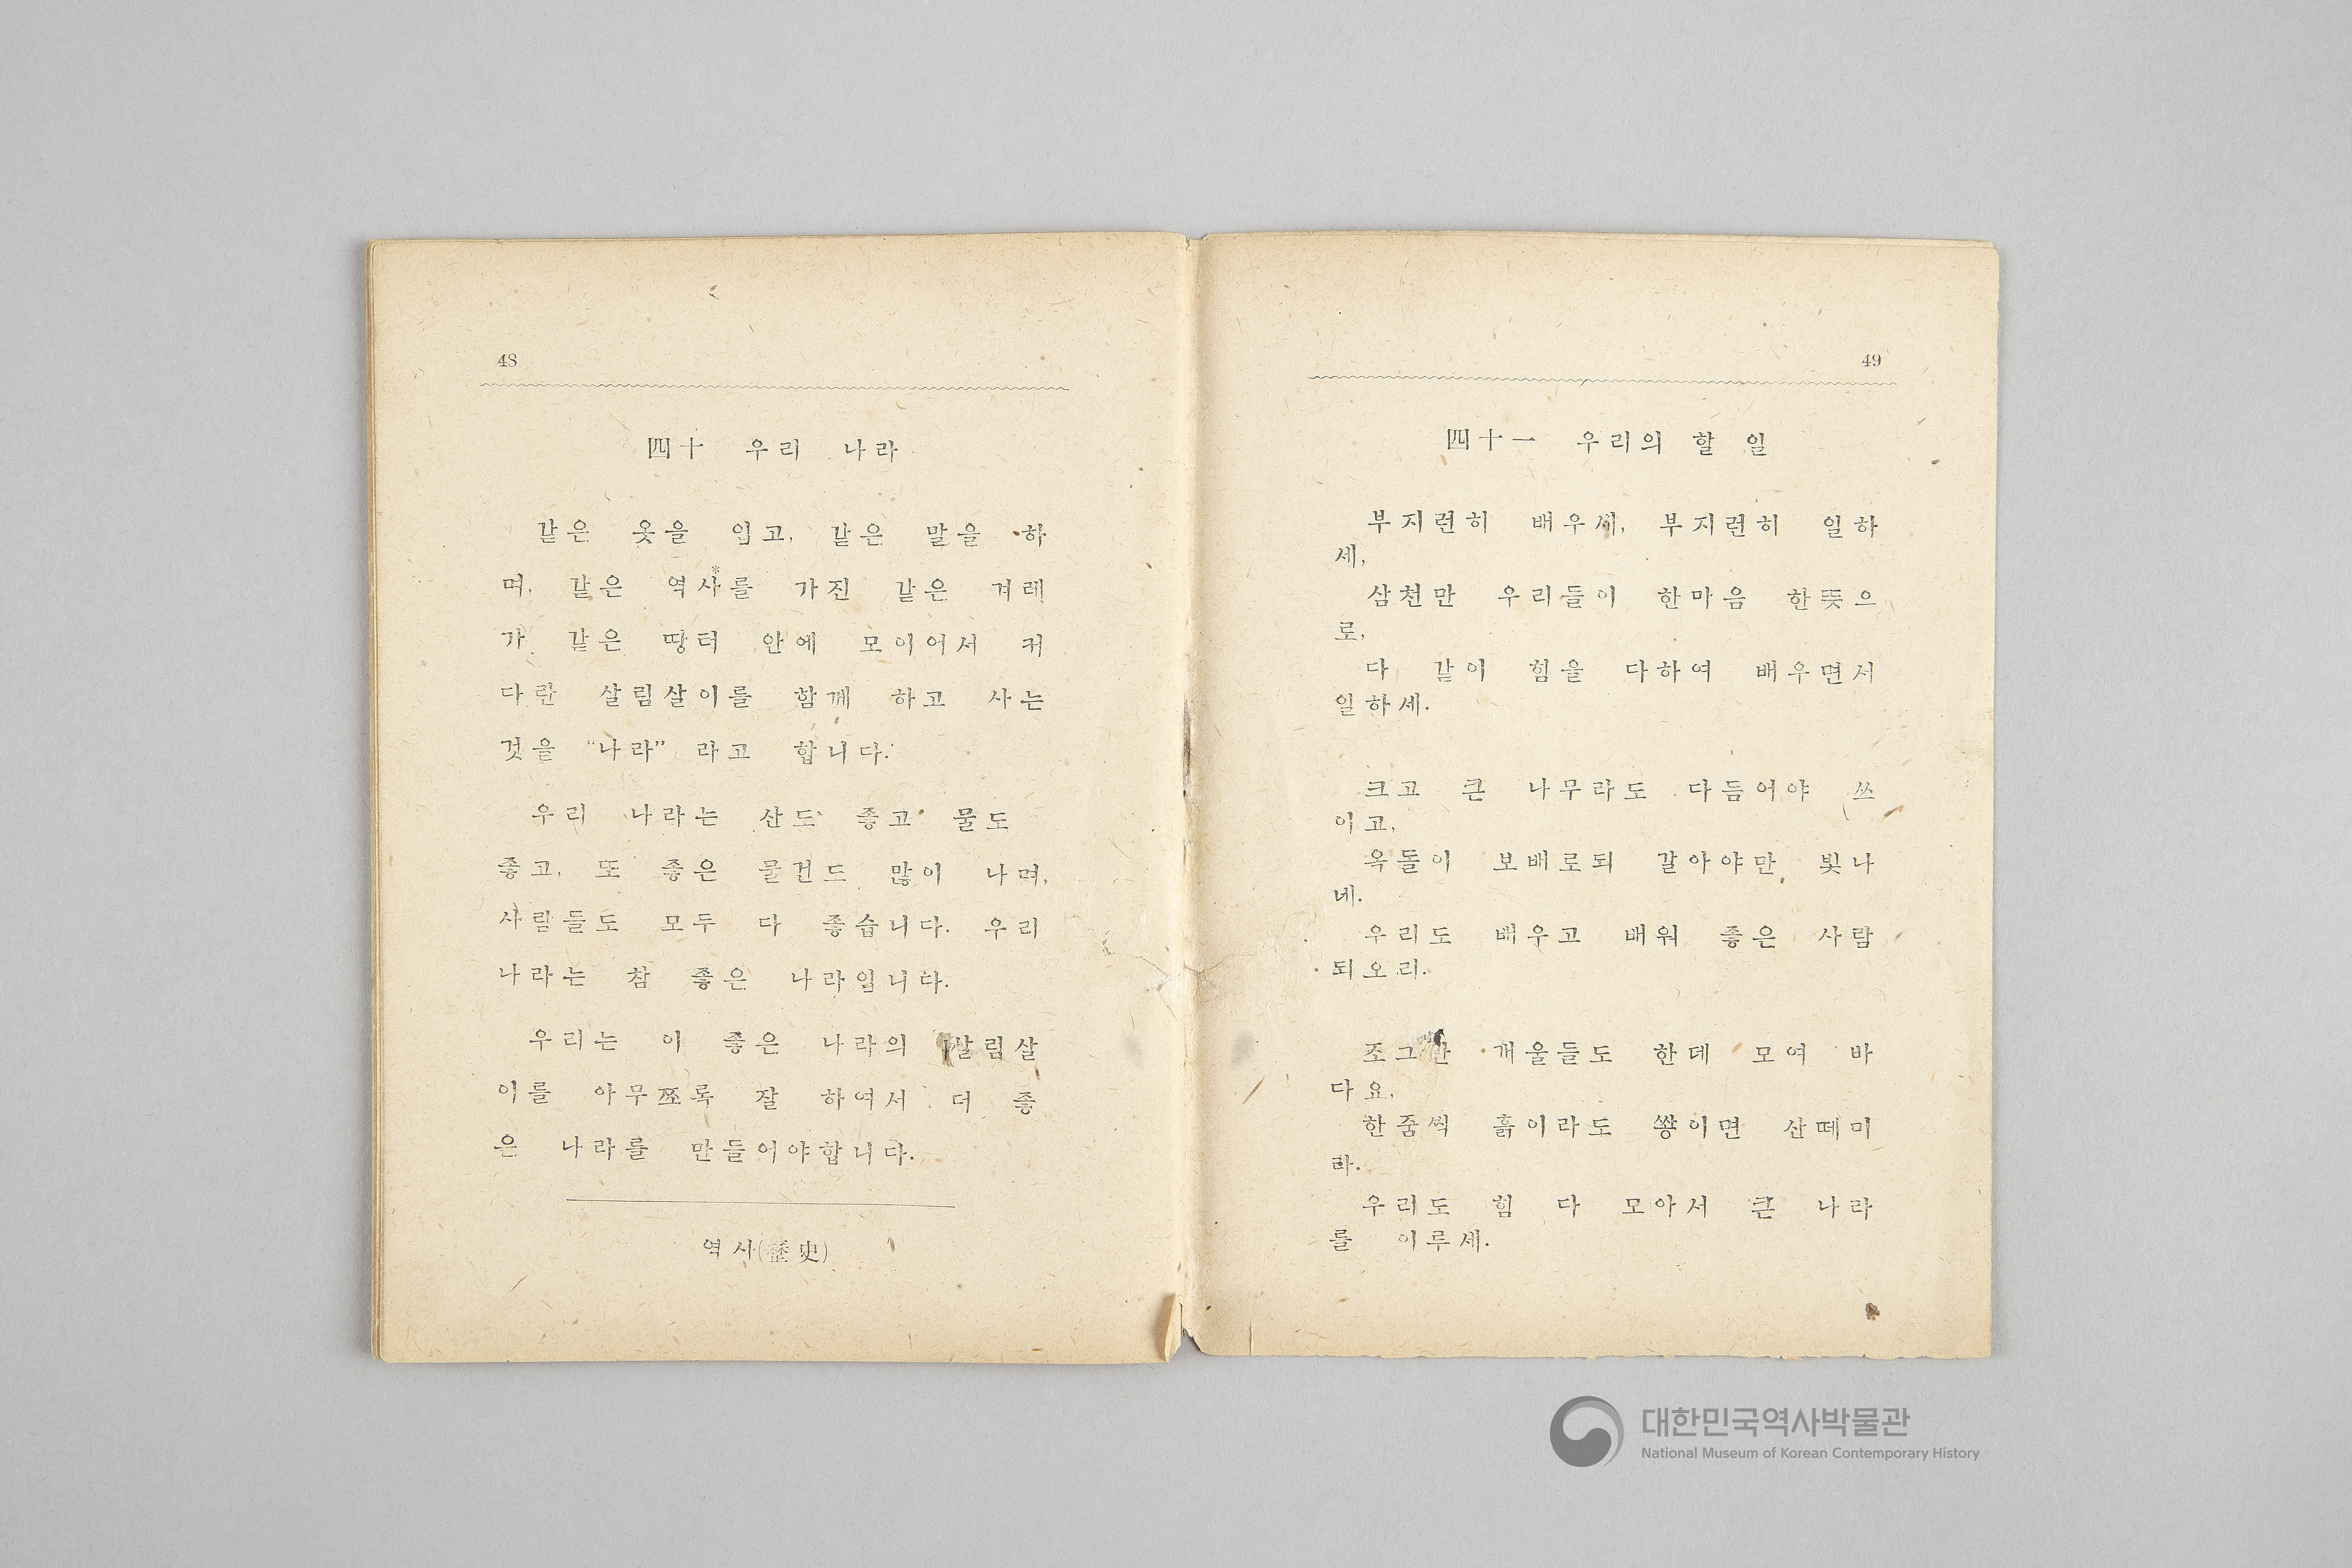 48
四十 우리 나라
같은 옷을 입고, 같은 말을 하
며, 같은 역사*를 가진 같은 겨레
가 같은 땅터 안에 모이어서 커
다란 살림살이를 함께 하고 사는
것을 “나라” 라고 합니다.
우리 나라는 산도 좋고 물도
좋고, 또 좋은 물건도 많이 나며,
사람들도 모두 다 좋습니다. 우리
나라는 참 좋은 나라입니다.
우리는 이 좋은 나라의 살림살
이를 아무쪼록 잘 하여서 더 좋
은 나라를 만들어야합니다.
역사(歷史)
49
四十一 우리의 할 일
부지런히 배우세, 부지런히 일하
세,
삼천만 우리들이 한마음 한뜻으
로,
다 같이 힘을 다하여 배우면서
일하세.
크고 큰 나무라도 다듬어야 쓰
이고,
옥돌이 보배로되 갈아야만 빛나
네.
우리도 배우고 배워 좋은 사람
되오리.
조그만 개울들도 한데 모여 바
다요,
한줌씩 흙이라도 쌓이면 산떼미
라.
우리도 힘 다 모아서 큰 나라
를 이루세.
대한민국역사박물관
National Museum of Korean Contemporary History